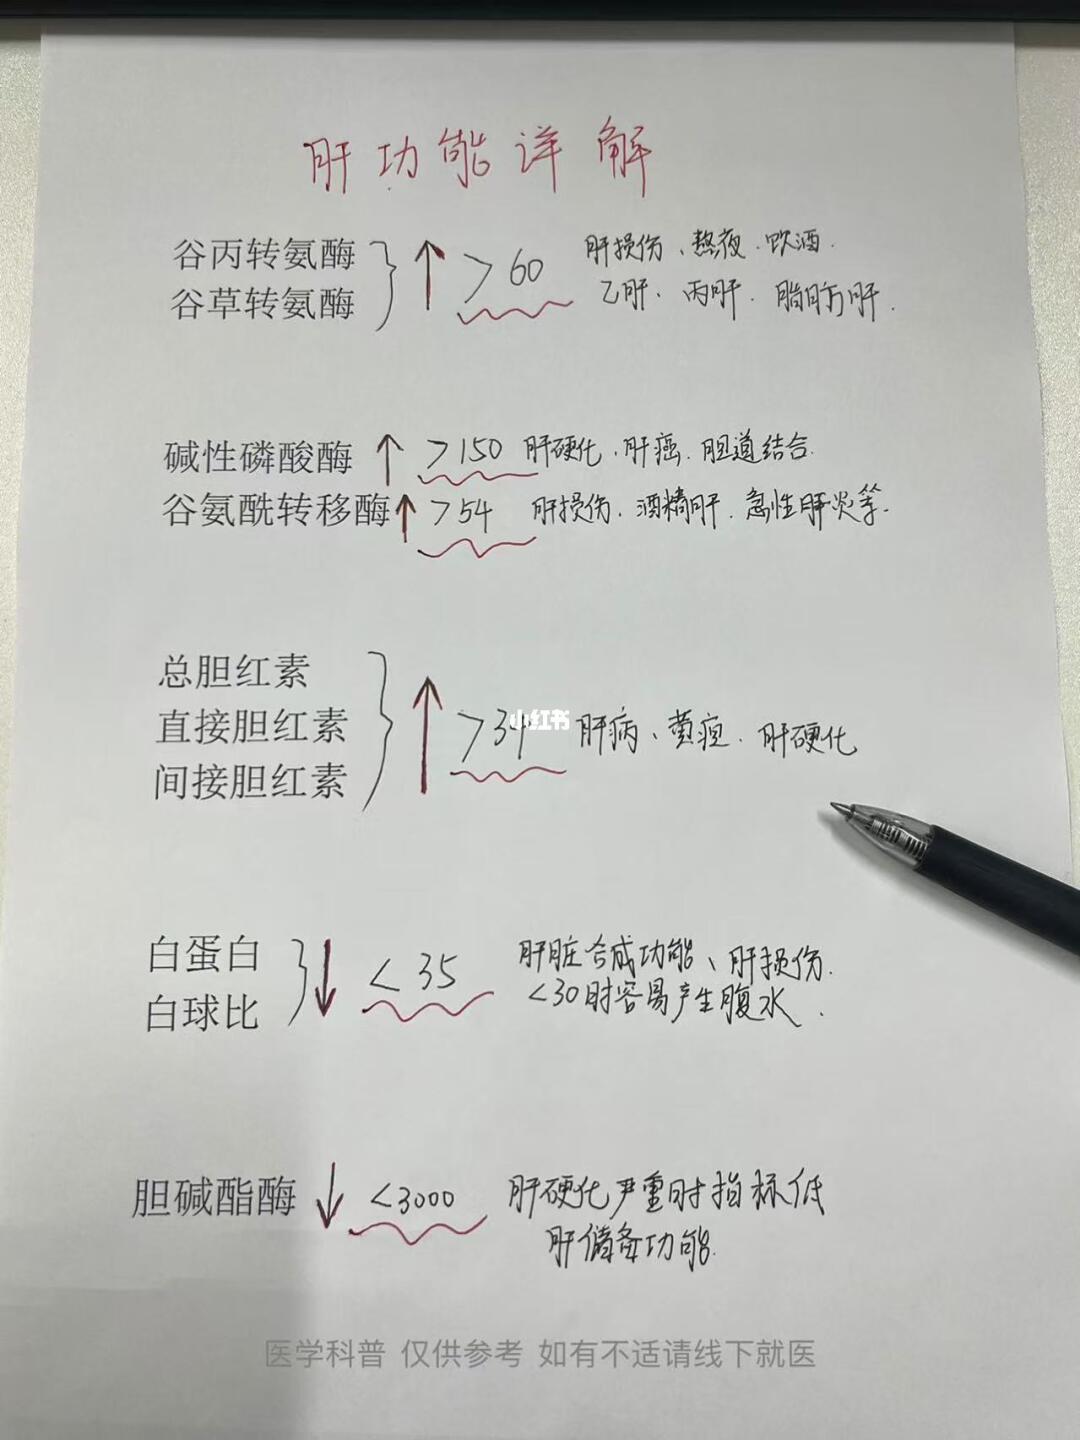 肝功能详解
谷丙转氨酶 ↑ >60 肝损伤、熬夜.饮酒.
谷草转氨酶 乙肝.丙肝.脂肪肝.
碱性磷酸酶 ↑ >150 肝硬化.肝癌.胆道结合.
谷氨酰转移酶 ↑ >54 肝损伤.酒精肝.急性肝炎等.
总胆红素
直接胆红素 ↑ >34 肝病、黄疸.肝硬化
小红书
间接胆红素
白蛋白 ↓ <35 肝脏合成功能、肝损伤.
白球比 <30时容易产生腹水.
胆碱酯酶 ↓ <3000 肝硬化严重时指标低
肝储备功能.
医学科普 仅供参考 如有不适请线下就医